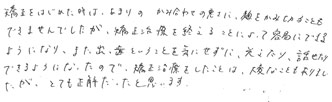 矯正をはじめた時は、あまりの かみ合わせの悪さに、麺をかみ切ることも
できませんでしたが、矯正治療を終えることによって容易にできる
ようになり、また、出っ歯ということを気にせずに、笑えたり、話せたり
できるようになったので、矯正治療をしたことは、大変なこともありまし
たが、とても正解だったと思います。